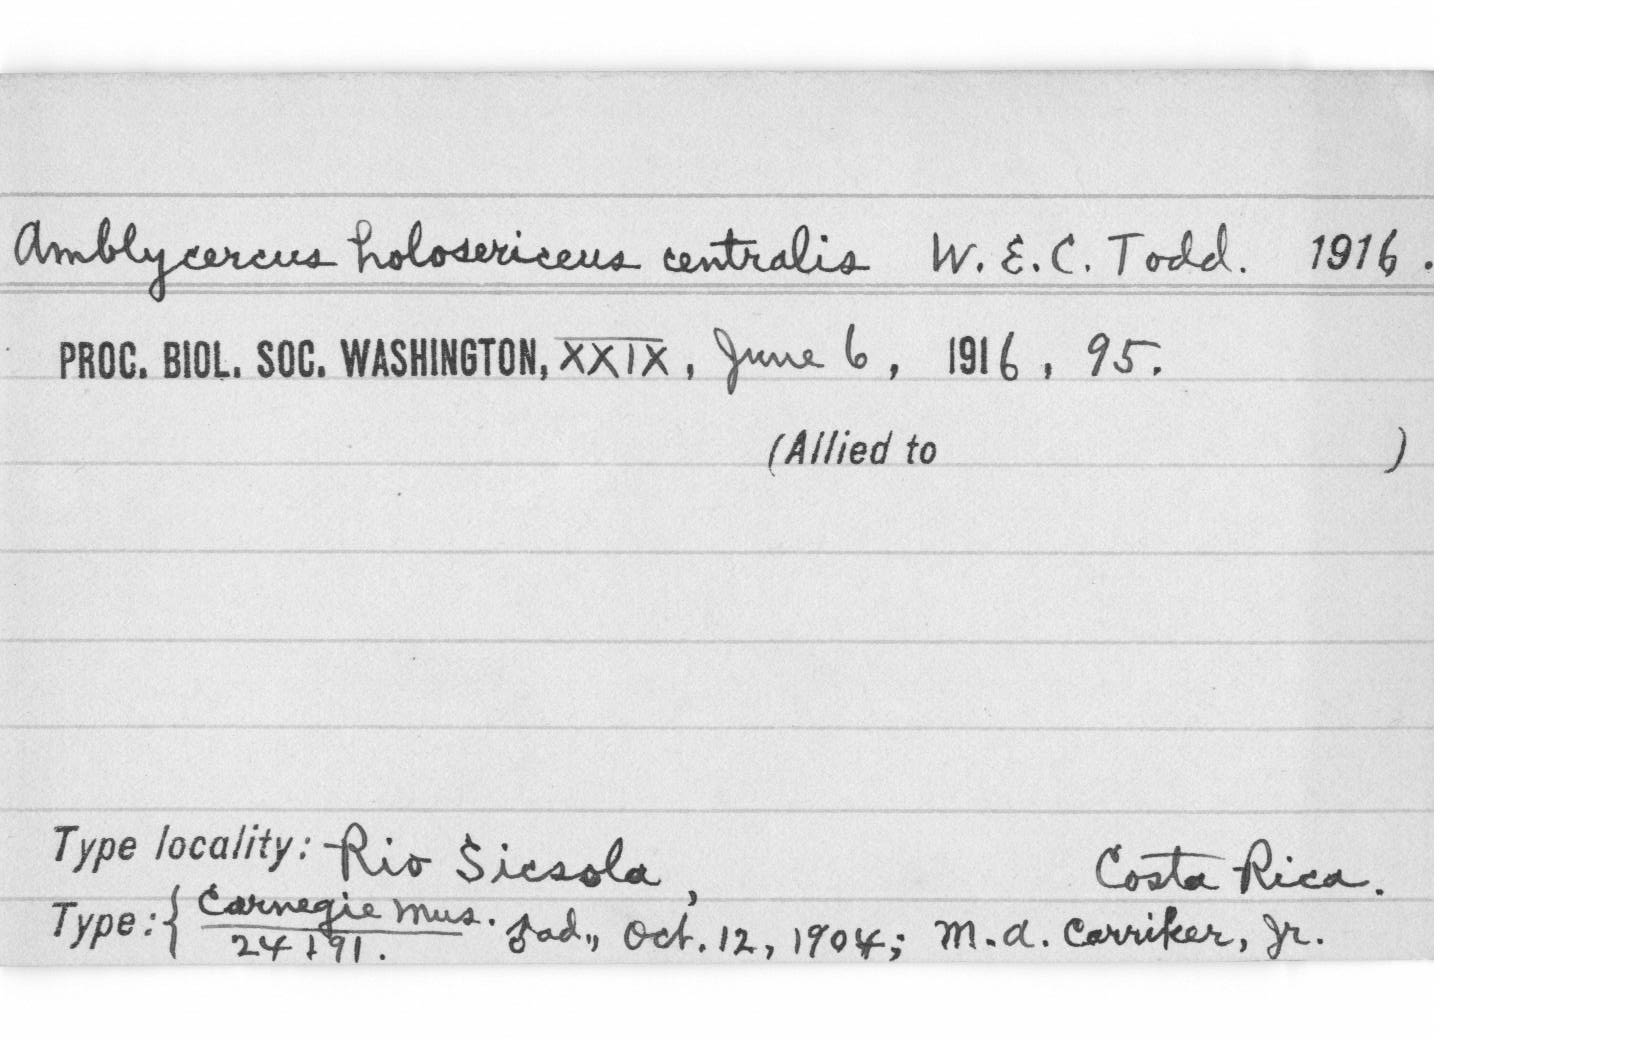 Amblycercus holosericeus centralis W. E. C. Todd. 1916.
PROC. BIOL. SOC. WASHINGTON, XXIX, June 6, 1916, 95.
(Allied to )
Type locality: Rio Sicsola, Costa Rica.
Type: { Carnegie Mus. ♂ ad., Oct. 12, 1904; M. A. Carriker, Jr.
24191.